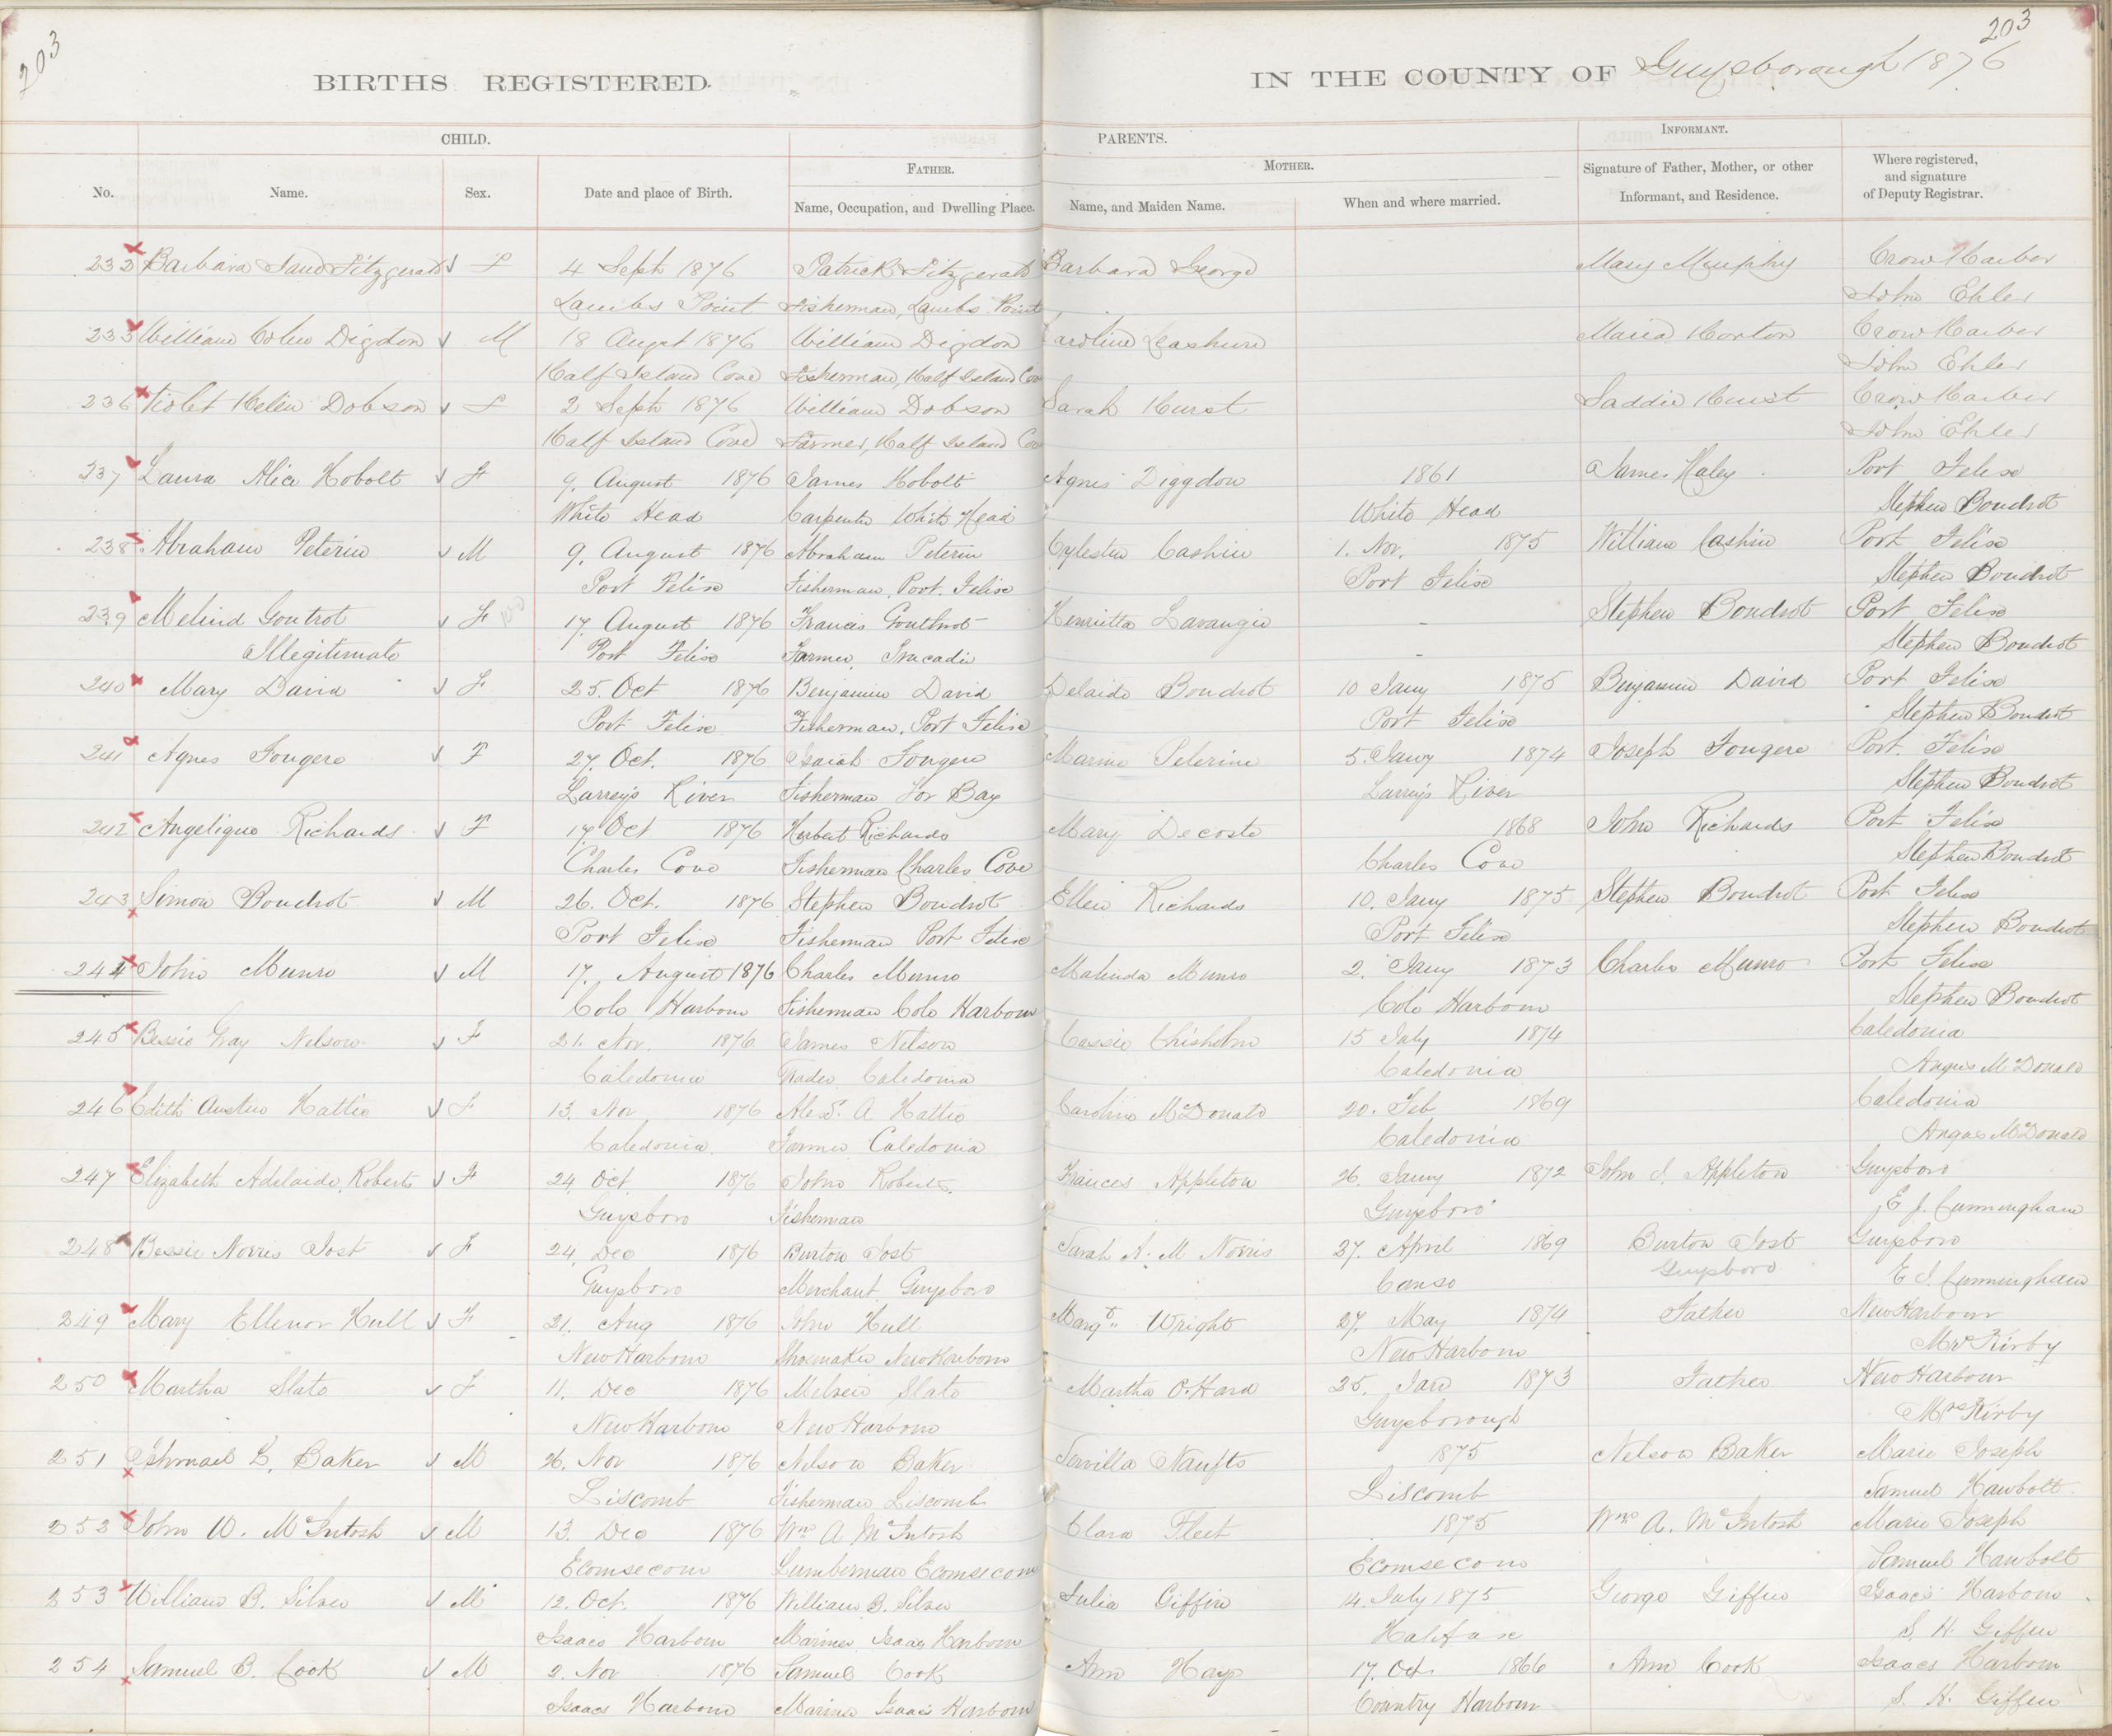 203
203
BIRTHS REGISTERED.
IN THE COUNTY OF Guysborough 1876
CHILD.
PARENTS.
INFORMANT.
FATHER.
MOTHER.
No.
Name.
Sex.
Date and place of Birth.
Name, Occupation, and Dwelling Place.
Name, and Maiden Name.
When and where married.
Signature of Father, Mother, or other
Informant, and Residence.
Where registered,
and signature
of Deputy Registrar.
Barbara Fitzgerald F 4 Sept 1876 Patrick Fitzgerald Barbara George Mary Murphy Crow Harbor
Lambs Point Fisherman, Lambs Point John Ehler
William Colin Digdon M 18 Augst 1876 William Digdon Caroline Maria Horton Crow Harbor
Half Island Cove Fisherman, Half Island Cove John Ehler
236 Violet Helen Dobson F 2 Sept 1876 William Dobson Sarah Hurst Saddie Hurst Crow Harbor
Half Island Cove Farmer, Half Island Cove John Ehler
237 Laura Alice Hobolt F 9. August 1876 James Hobolt Agnes Diggdon 1861 James Haley Port Felix
White Head Carpenter White Head White Head Stephen Boudrot
238 Abraham Peterin M 9. August 1876 Abraham Peterin Cylestin Cashin 1. Nov. 1875 William Cashin Port Felix
Port Felix Fisherman, Port Felix Port Felix Stephen Boudrot
239 Melind Goutrot F 17. August 1876 Francis Henrietta Lavangie - Stephen Boudrot Port Felix
Illegitimate Port Felix Farmer, Tracadie - Stephen Boudrot
240 Mary David F 25. Oct 1876 Benjamin David Delaide Boudrot 10 Jany 1875 Benjamin David Port Felix
Port Felix Fisherman, Port Felix Port Felix Stephen Boudrot
241 Agnes Fougere F 27. Oct. 1876 Isaiah Fougere Marine Pelerine 5. Jany 1874 Joseph Fougere Port Felix
Larrey's River Fisherman Tor Bay Larrey's River Stephen Boudrot
242 Angelique Richards F 17 Oct 1876 Herbert Richards Mary Decoste 1868 John Richards Port Felix
Charles Cove Fisherman Charles Cove Charles Cove Stephen Boudrot
243 Simon Boudrot M 26. Oct. 1876 Stephen Boudrot Ellen Richards 10. Jany 1875 Stephen Boudrot Port Felix
Port Felix Fisherman Port Felix Port Felix Stephen Boudrot
244 John Munro M 17. August 1876 Charles Munro Malinda Munro 2. Jany 1873 Charles Munro Port Felix
Cole Harbour Fisherman Cole Harbour Cole Harbour Stephen Boudrot
245 Bessie Gray Nelson F 21. Nov. 1876 James Nelson Cassie Chisholm 15 July 1874 Caledonia
Caledonia Trader, Caledonia Caledonia Angus McDonald
246 Edith Austin Hattie F 13. Nov 1876 Alex. A Hattie Caroline McDonald 20. Feb 1869 Caledonia
Caledonia Farmer Caledonia Caledonia Angus McDonald
247 Elizabeth Adelaide Roberts F 24 Oct. 1876 John Roberts Frances Appleton 26. Jany 1872 John J. Appleton Guysboro
Guysboro Fisherman Guysboro E J. Cunningham
248 Bessie Norris Jost F 24 Dec 1876 Burton Jost Sarah A. M Norris 27. April 1869 Burton Jost Guysboro
Guysboro Merchant, Guysboro Canso Guysboro E J. Cunningham
249 Mary Ellenor Hull F 21. Aug 1876 John Hull Margt. Wright 27. May 1874 Father New Harbour
New Harbour Shoemaker New Harbour New Harbour Mrs Kirby
250 Martha Slate F 11. Dec 1876 Slate Martha O'Hara 25. Jan 1873 Father New Harbour
New Harbour New Harbour Guysborough Mrs Kirby
251 Ishmael L. Baker M 26. Nov 1876 Nelson Baker Servilla 1875 Nelson Baker Marie Joseph
Liscomb Fisherman Liscomb Liscomb Samuel Hawbolt
252 John W. McIntosh M 13. Dec 1876 Wm A McIntosh Clara Fleet 1875 Wm A. McIntosh Marie Joseph
Ecomsecom Lumberman Ecomsecom Ecomsecom Samuel Hawbolt
253 William B. Silver M 12. Oct. 1876 William B. Silver Julia Giffin 14. July 1875 George Giffin Isaacs Harbour
Isaacs Harbour Mariner Isaacs Harbour Halifax S. H. Giffin
254 Samuel B. Cook M 2. Nov 1876 Samuel Cook Ann Hays 17. Oct 1866 Ann Cook Isaacs Harbour
Isaacs Harbour Mariner Isaacs Harbour Country Harbour S. H. Giffin